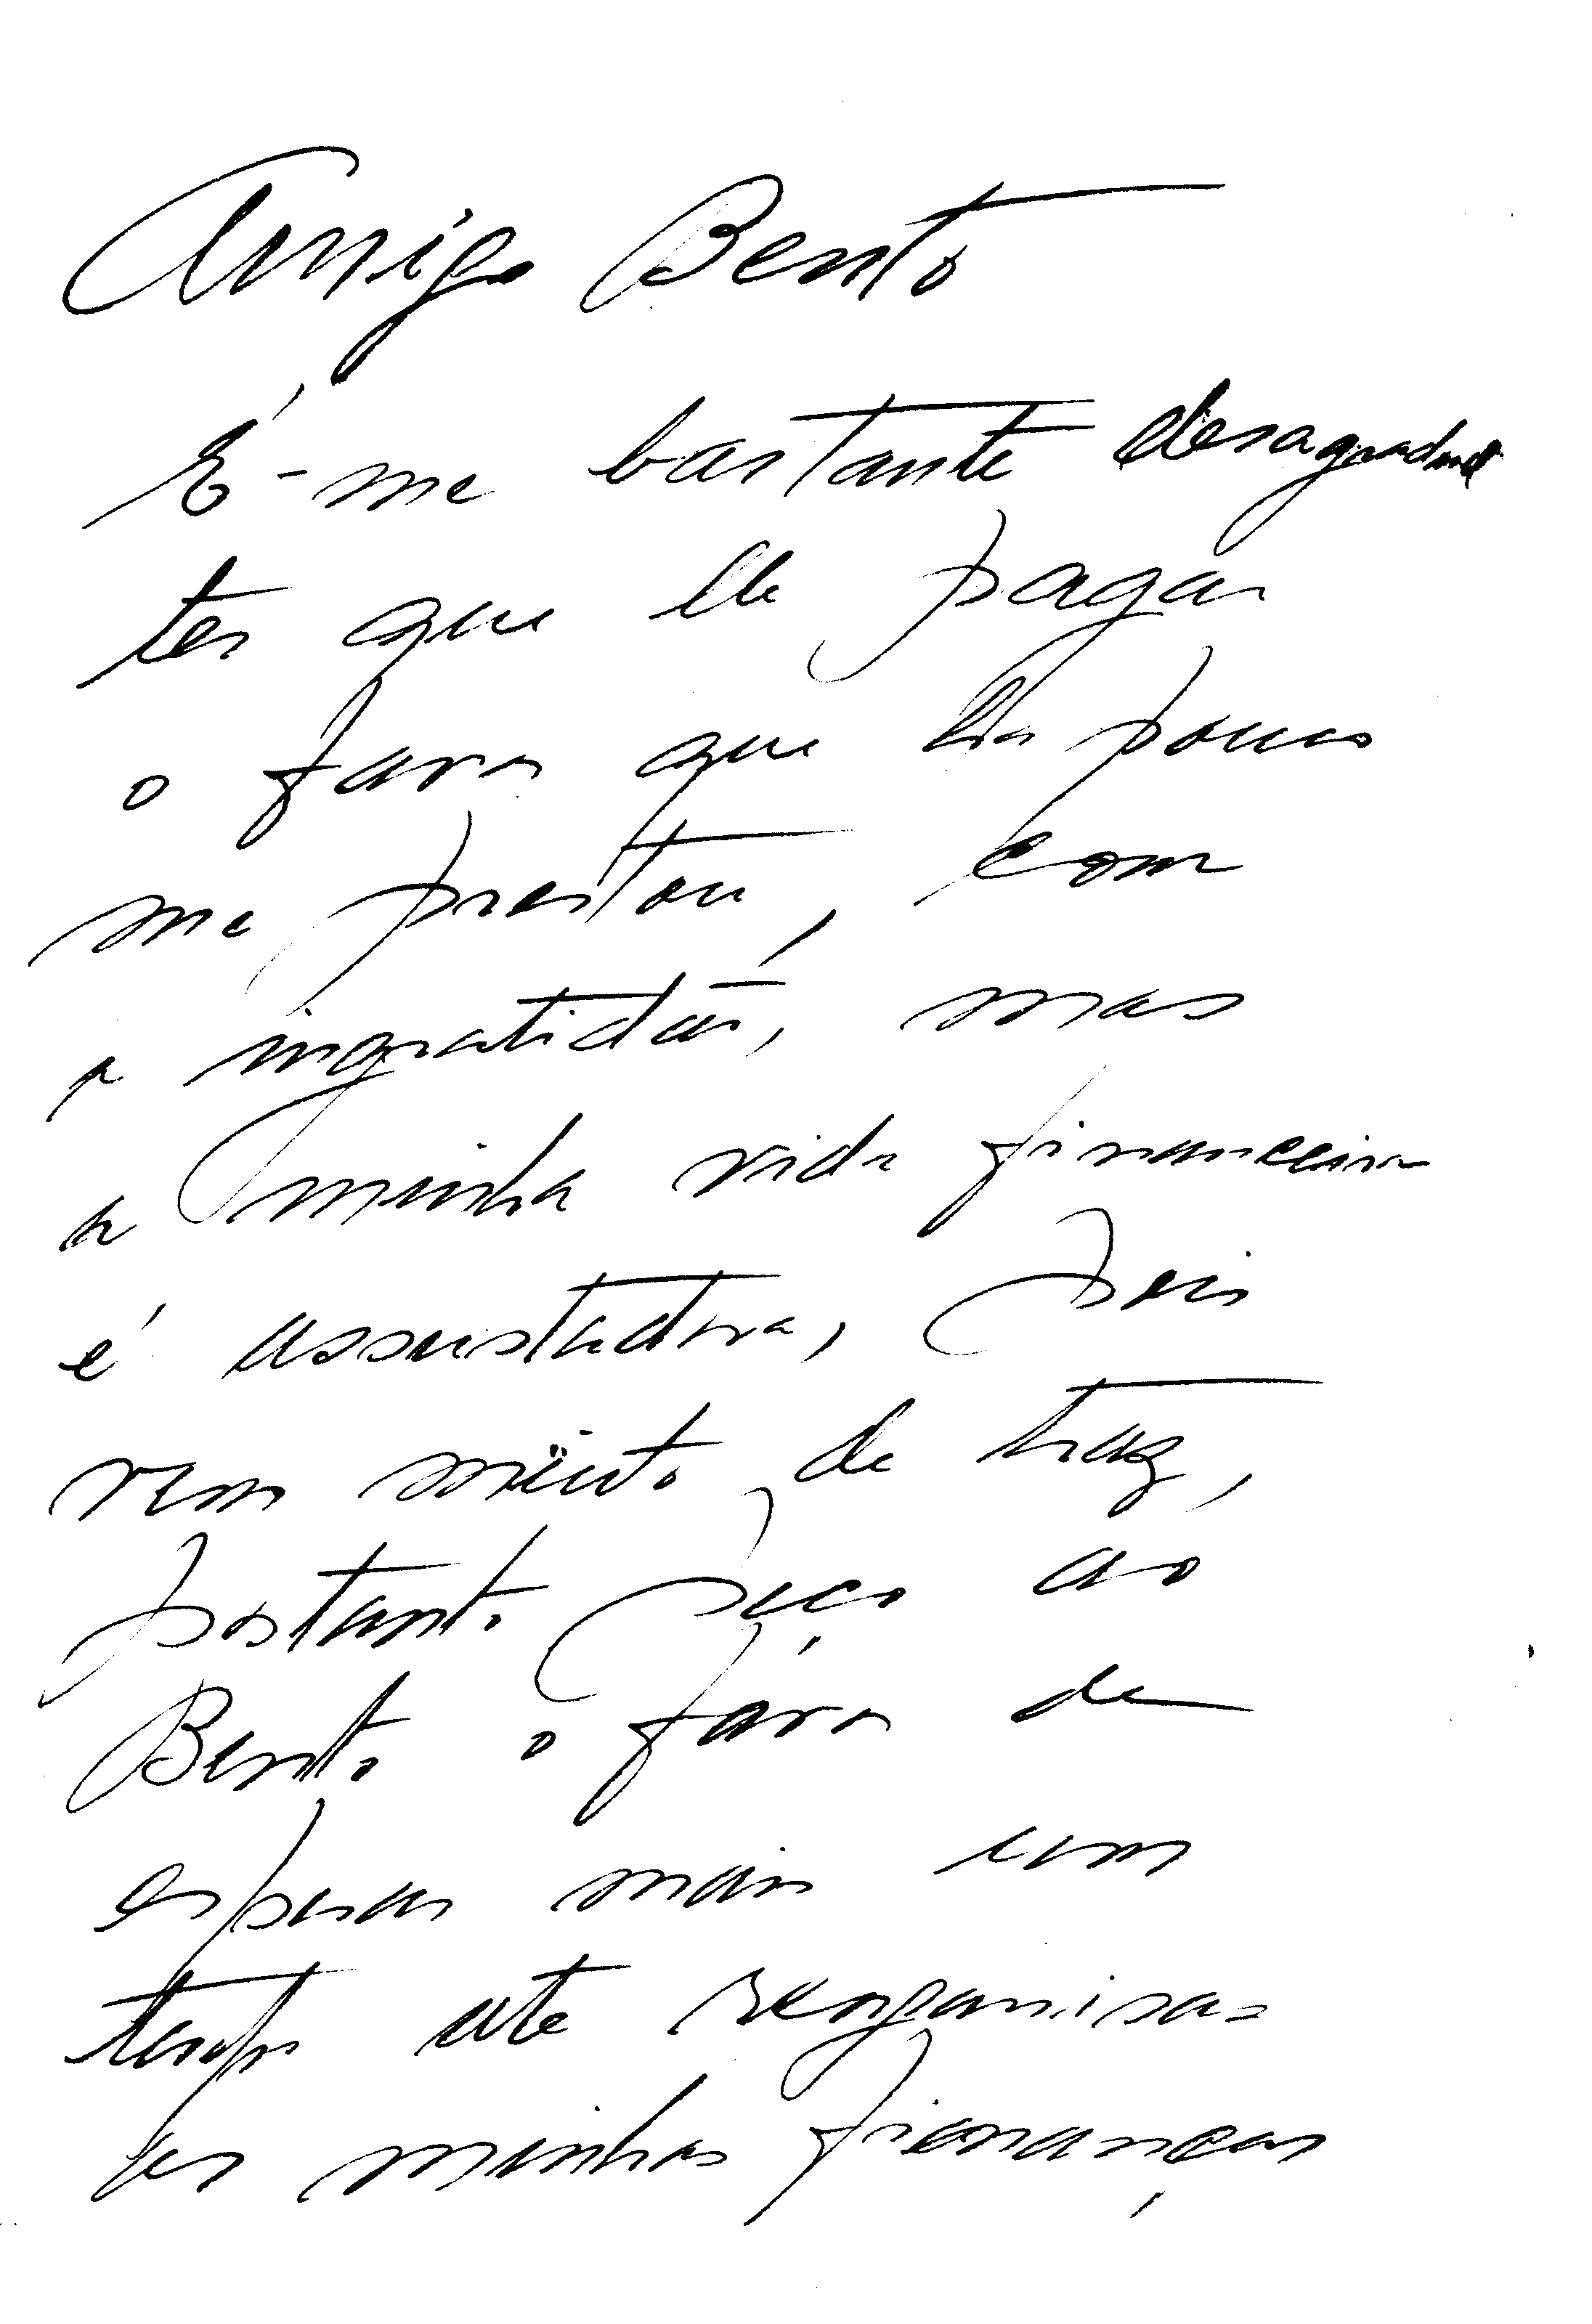 Amigo Bento
É-me bastante desagradavel
ter que lhe pagar
o favor que ha pouco
me prestou, com
a ingratidão, mas
a minha vida financeira
é assustadora, pois
vem müito de traz,
portanto peço ao
Bento o favor de
esperar mais um
tempo até reorganisar
as minhas finanças